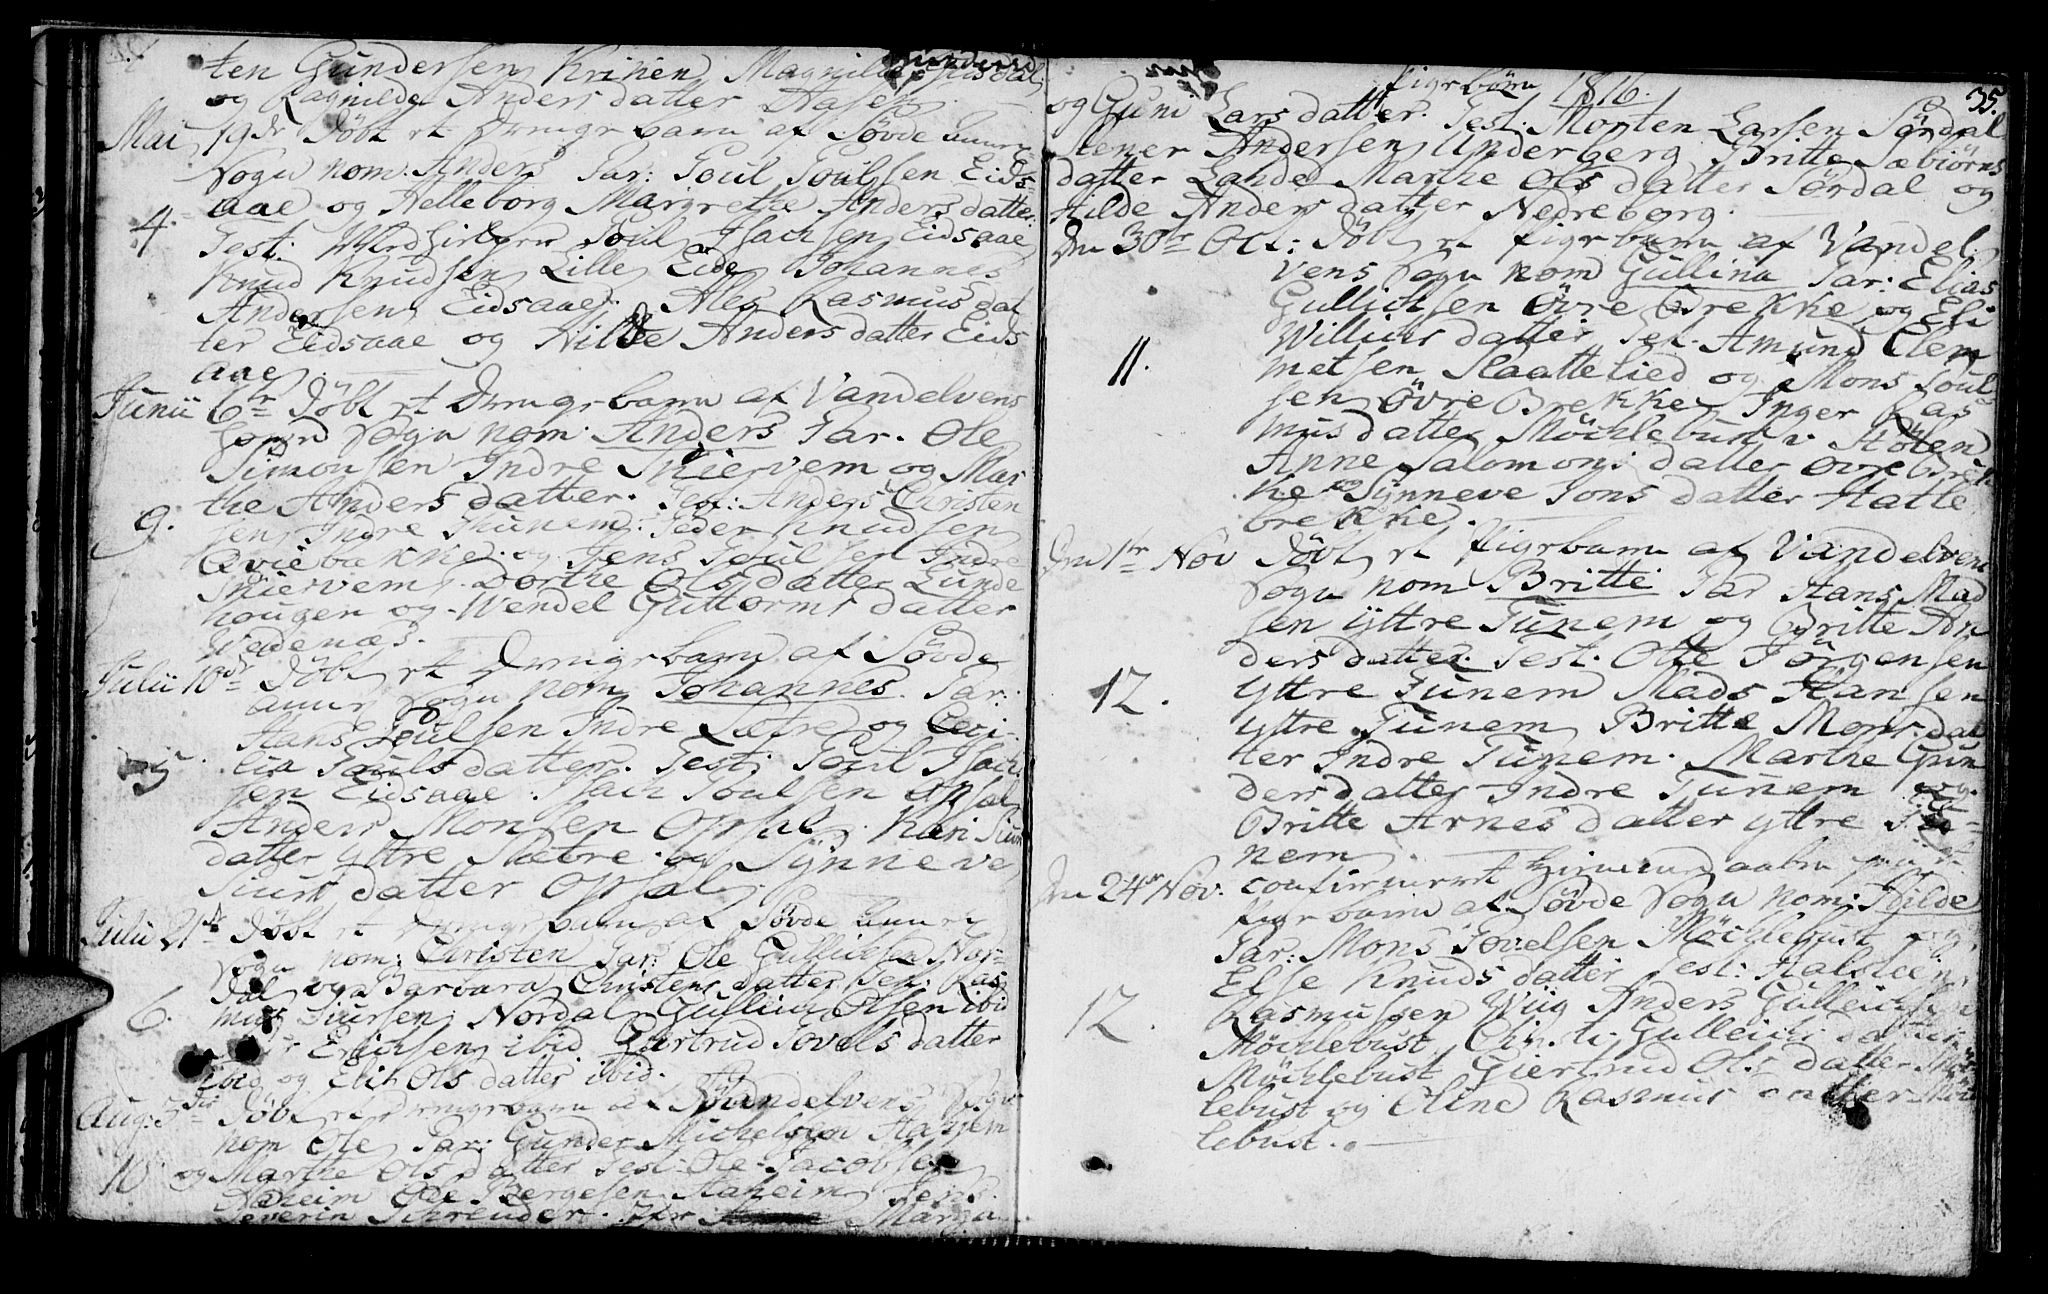 ten Gundersen Krinen Magnilde
og Ragnilde Anders datter Aasen
Mai 19de Döbt et Drengebarn af Søvde
Sogn nom. Anders Par: Poul Poulsen Eids
aae og Helleborg Margrethe Anders datter
4.
Test: Poul Isachsen Eidsaae
Knud Knudsen Lille Eide Johannes
Andersen Eidsaae. Ales Rasmus dat
ter Eidsaae og Hilde Anders datter Eids
aae.
Junii 6te Döbt et Drengebarn af Vandelvens
Sogn nom. Anders Par. Ole
Simonsen Indre Skiervem og Mar
the Anders datter. Test: Anders Christen
9.
sen Indre Thunem. Peder Knudsen
Qviebakke og Jens Poulsen Indre
Skiervem. Dorthe Ols datter Lunde
hougen og Wendel Guttorms datter
Weidenæs.
Julii 10de Döbt et Drengebarn af Søvde
Sogn nom. Johannes. Par:
Hans Poulsen Indre Sætre og Ceci-
5.
lia Pouls datter. Test: Poul Isach
sen Eidsaae. Isach Poulsen Opsal
Anders Monsen Opsal. Kari Siur
datter yttre Sætre og Synneve
Siurs datter Opsal.
Julii 21de Döbt et Drengebarn af Søvde
Sogn nom: Christen Par: Ole Gullichsen Nor-
dal og Barbara Christens datter Test: Ras
6.
mus Siursen Nordal Gullich Olsen ibid
Erichsen ibid Giertrud Povels datter
ibid og Eli Ols datter ibid.
Aug: Döbt et Drengebarn af Vandelvens Sogn
nom Ole Par: Gunder Michelsen
10.
og Marthe Ols datter Test: Ole Jacobsen
Aaheim Ole Børgesen Aaheim Jens
Severin Schreuder.
Pigebörn 1816.
35.
og Guni Lars datter. Test. Morten Larsen Sørdal
Stener Andersen Anderberg Britte Sæbiörns
datter Lande Marthe Ols datter Sørdal og
Hilde Anders datter Nedreberg.
Den 30te Oct: Döbt et Pigebarn af Vandel
vens Sogn nom Gullina Par: Elias
Gullichsen Övre Brekke og Eli
Willums datter Test. Amund Clem
11.
metsen Slaattelied og Mons Poul
sen Övre Brekke Inger Ras
mus datter Möchlebust v. Stölen
Anne Salomons datter Övre Brek
ke og Synneve Jons datter Hatle
brekke.
Den 1te Nov Döbt et Pigebarn af Vandelvens
Sogn nom Britte Par Hans Mad
sen yttre Tunem og Britte An
ders datter. Test. Ole Jörgensen
12.
yttre Tunem Mads Hansen
yttre Tunem Britte Mons dat
ter Indre Tunem. Marthe Gun
ders datter Indre Tunem og
Britte Arnes datter yttre Tu-
nem
Den 24de Nov. confirmeret Hiemmedaaben paa et
Pigebarn af Søvde Sogn nom: Hilde
Par: Mons Povelsen Möchlebust og
Else Knuds datter Test: Halsteen
12.
Rasmussen Wiig Anders Gulleichsen
Möchlebust Gulleichs datter
Möchlebust Giertrud Ols datter Möch
lebust og Eline Rasmus datter Möch
lebust.